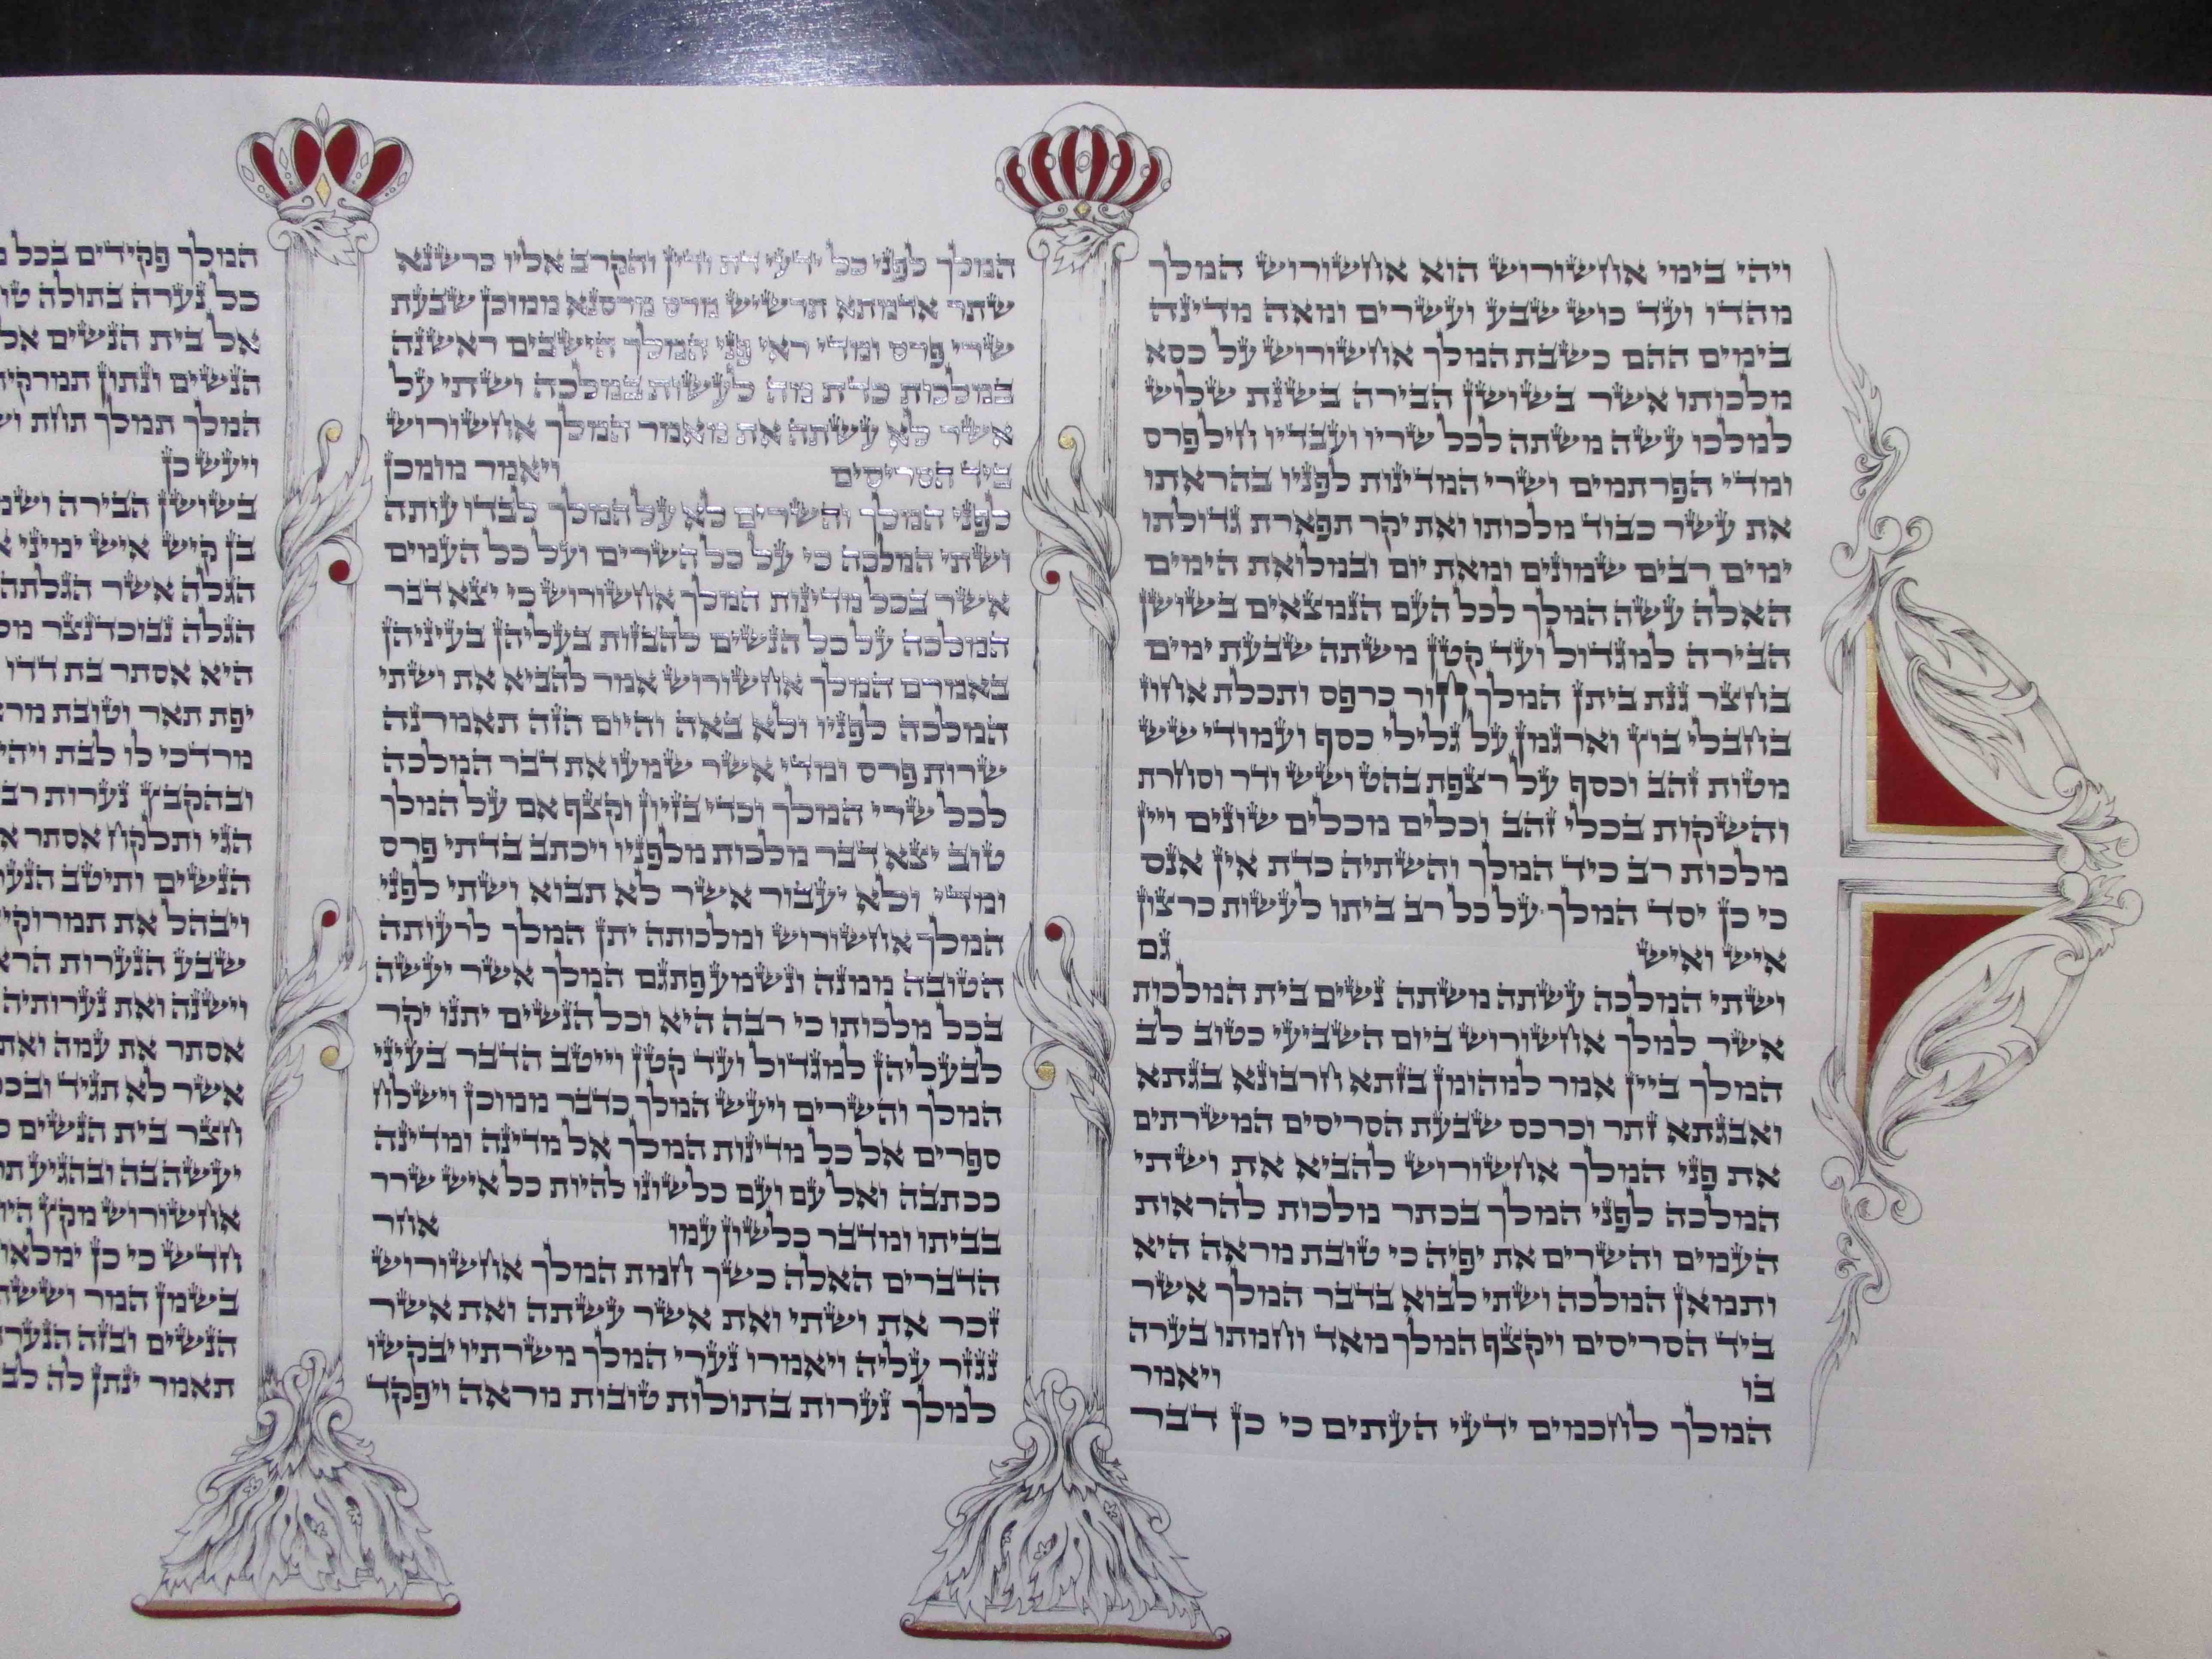 ויהי בימי אחשורוש הוא אחשורוש המלך
מהדו ועד כוש שבע ועשרים ומאה מדינה
בימים ההם כשבת המלך אחשורוש על כסא
מלכותו אשר בשושן הבירה בשנת שלוש
למלכו עשה משתה לכל שריו ועבדיו חיל פרס
ומדי הפרתמים ושרי המדינות לפניו בהראתו
את עשר כבוד מלכותו ואת יקר תפארת גדולתו
ימים רבים שמונים ומאת יום ובמלואת הימים
האלה עשה המלך לכל העם הנמצאים בשושן
הבירה למגדול ועד קטן משתה שבעת ימים
בחצר גנת ביתן המלך חור כרפס ותכלת אחוז
בחבלי בוץ וארגמן על גלילי כסף ועמודי שש
מטות זהב וכסף על רצפת בהט ושש ודר וסחרת
והשקות בכלי זהב וכלים מכלים שונים ויין
מלכות רב כיד המלך והשתיה כדת אין אנס
כי כן יסד המלך על כל רב ביתו לעשות כרצון
איש ואיש גם
ושתי המלכה עשתה משתה נשים בית המלכות
אשר למלך אחשורוש ביום השביעי כטוב לב
המלך ביין אמר למהומן בזתא חרבונא בגתא
ואבגתא זתר וכרכס שבעת הסריסים המשרתים
את פני המלך אחשורוש להביא את ושתי
המלכה לפני המלך בכתר מלכות להראות
העמים והשרים את יפיה כי טובת מראה היא
ותמאן המלכה ושתי לבוא בדבר המלך אשר
ביד הסריסים ויקצף המלך מאד וחמתו בערה
בו ויאמר
המלך לחכמים ידעי העתים כי כן דבר
המלך לפני כל ידעי דת ודין והקרב אליו כרשנא
שתר אדמתא תרשיש מרס מרסנא ממוכן שבעת
שרי פרס ומדי ראי פני המלך הישבים ראשנה
במלכות כדת מה לעשות במלכה ושתי על
אשר לא עשתה את מאמר המלך אחשורוש
ביד הסריסים ויאמר מומכן
לפני המלך והשרים לא על המלך לבדו עותה
ושתי המלכה כי על כל השרים ועל כל העמים
אשר בכל מדינות המלך אחשורוש כי יצא דבר
המלכה על כל הנשים להבזות בעליהן בעיניהן
באמרם המלך אחשורוש אמר להביא את ושתי
המלכה לפניו ולא באה והיום הזה תאמרנה
שרות פרס ומדי אשר שמעו את דבר המלכה
לכל שרי המלך וכדי בזיון וקצף אם על המלך
טוב יצא דבר מלכות מלפניו ויכתב בדתי פרס
ומדי ולא יעבור אשר לא תבוא ושתי לפני
המלך אחשורוש ומלכותה יתן המלך לרעותה
הטובה ממנה ונשמע פתגם המלך אשר יעשה
בכל מלכותו כי רבה היא וכל הנשים יתנו יקר
לבעליהן למגדול ועד קטן וייטב הדבר בעיני
המלך והשרים ויעש המלך כדבר ממוכן וישלח
ספרים אל כל מדינות המלך אל מדינה ומדינה
ככתבה ואל עם ועם כלשונו להיות כל איש שרר
בביתו ומדבר כלשון עמו אחר
הדברים האלה כשך חמת המלך אחשורוש
זכר את ושתי ואת אשר עשתה ואת אשר
נגזר עליה ויאמרו נערי המלך משרתיו יבקשו
למלך נערות בתולות טובות מראה ויפקד
המלך פקידים בכל
כל נערה בתולה
אל בית הנשים אל
הנשים ונתון
המלך תמלך תחת
ויעש כן
בשושן הבירה
בן קיש איש ימיני
הגלה אשר הגלתה
הגלה נבוכדנצר
היא אסתר בת דדו
יפת תאר וטובת
מרדכי לו לבת ויהי
ובהקבץ נערות
הגי ותלקח אסתר
הנשים ותיטב
ויבהל את
שבע הנערות
וישנה ואת נערותיה
אסתר את עמה ואת
אשר לא תגיד
חצר בית הנשים
יעשה בה ובהגיע
אחשורוש מקץ
חדש כי כן ימלאו
בשמן המר
הנשים ובזה
תאמר ינתן לה